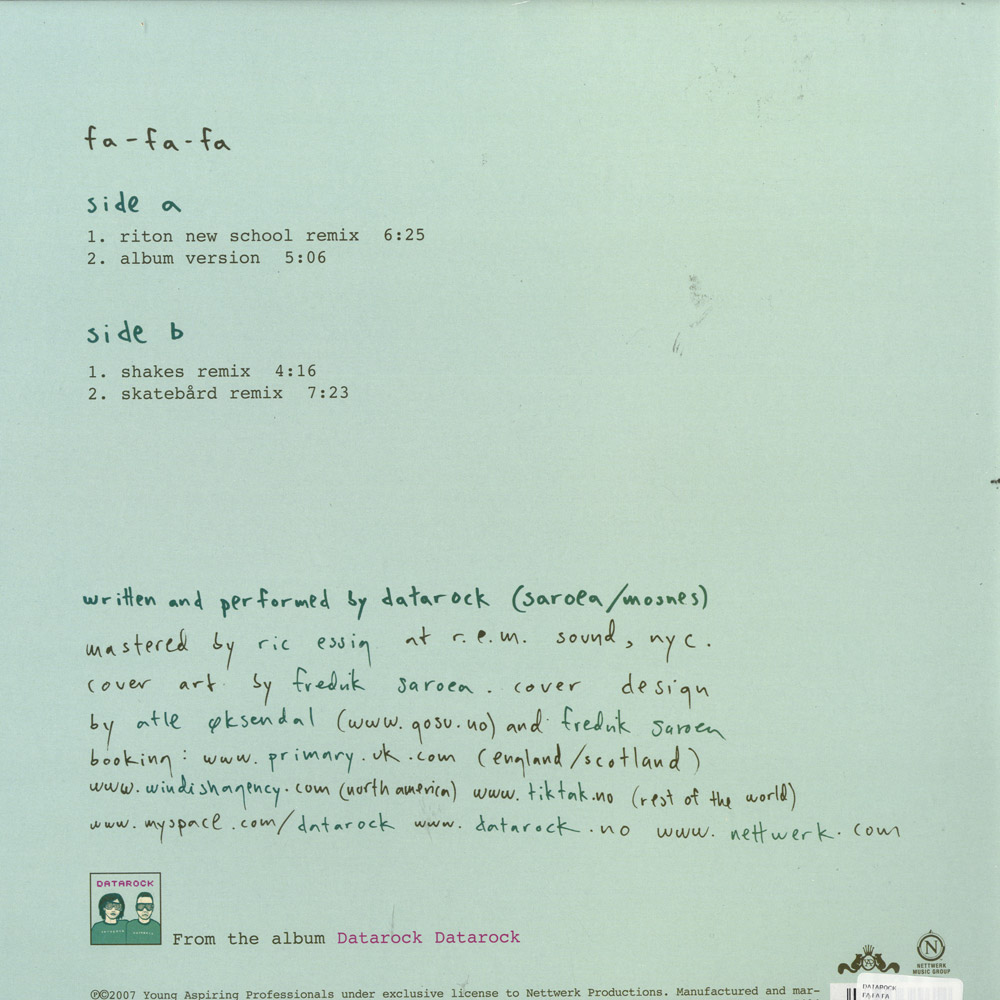 fa-fa-fa
side a
1. riton new school remix 6:25
2. album version 5:06
side b
1. shakes remix 4:16
2. skatebård remix 7:23
written and performed by datarock (saroea/mosnes)
mastered by ric essig at r.e.m. sound, nyc.
cover art by fredrik saroea. cover design
by atle øksendal (www.gosu.no) and fredrik saroea
booking: www.primary.uk.com (england/scotland)
www.windishagency.com (north america) www.tiktak.no (rest of the world)
www.myspace.com/datarock www.datarock.no www.nettwerk.com
DATAROCK
From the album Datarock Datarock
N
NETTWERK
MUSIC GROUP
DATAROCK
FA FA FA
℗©2007 Young Aspiring Professionals under exclusive license to Nettwerk Productions. Manufactured and mar-